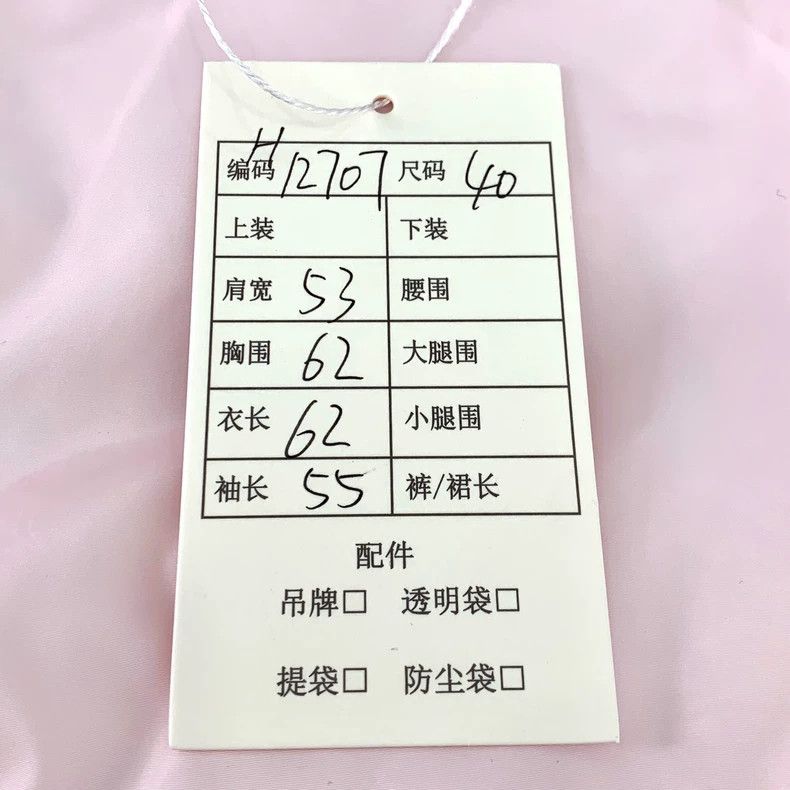 编码 H12707 尺码 40
上装 下装
肩宽 53 腰围
胸围 62 大腿围
衣长 62 小腿围
袖长 55 裤/裙长
配件
吊牌□ 透明袋□
提袋□ 防尘袋□